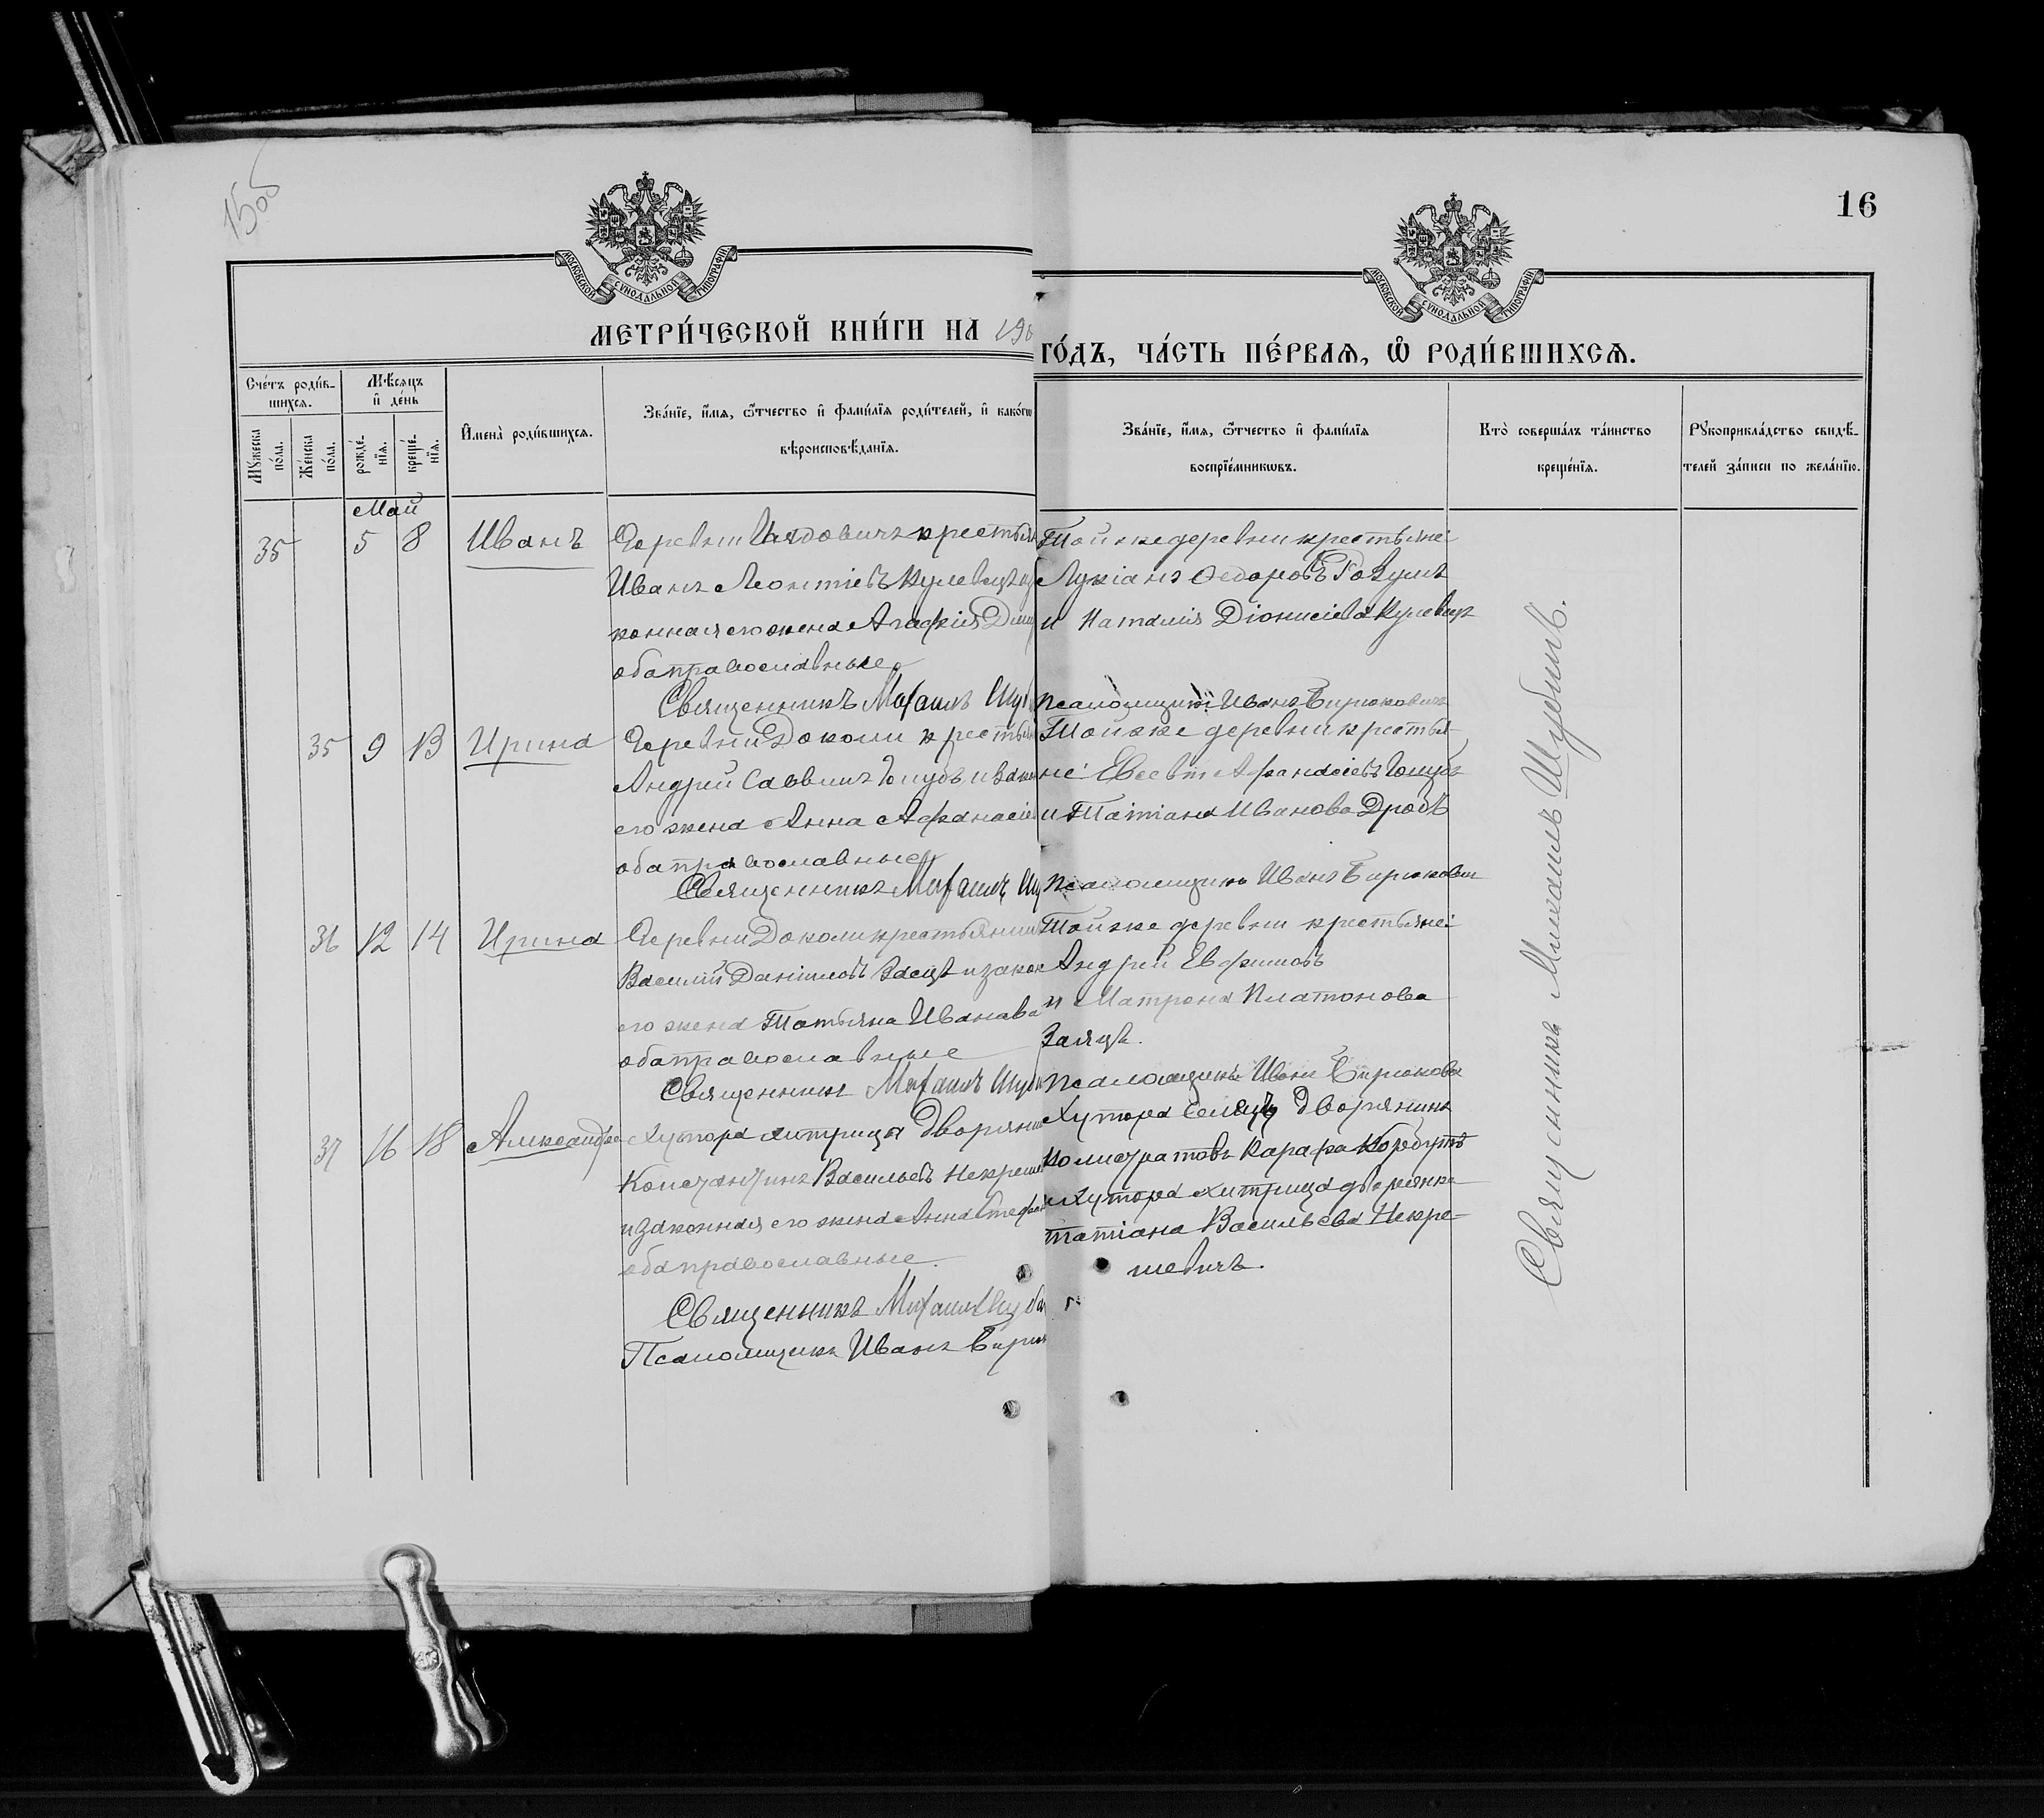 150б
16
МОСКОВСКОЙ СѴНОДАЛЬНОЙ ТИПОГРАФІИ
МОСКОВСКОЙ СѴНОДАЛЬНОЙ ТИПОГРАФІИ
МЕТРИ́ЧЕСКОЙ КНИ́ГИ НА 190
ГО́ДЪ, ЧА́СТЬ ПЕ́РВАѦ, Ѽ РОДИ́ВШИХСѦ.
Сче́тъ роди́в-
шихся.
Мѣ́сяцъ
и҆ де́нь
Мꙋ́жеска
по́ла.
Же́нска
по́ла.
рожде́-
нїя.
креще́-
нїя.
И҆мена̀ роди́вшихся.
Зва́нїе, и҆́мя, ѻ҆́тчество и҆ фами́лїя роди́телей, и҆ како́гѡ
вѣроисповѣ́данїя.
Зва́нїе, и҆́мя, ѻ҆́тчество и҆ фами́лїя
воспрїе́мникѡвъ.
Кто̀ соверша́лъ та́инство
креще́нїя.
Рꙋкоприкла́дство свидѣ́-
телей за́писи по жела́нїю.
Май
35 5 8 Иванъ
Деревни крестьян
Иванъ Леонтіевъ Кулевецъ
конная его жена Агафія Дим
оба православные
Священникъ Михаилъ Шуб
Той же деревни крестьяне:
Лукіанъ Ѳедоровъ
и Наталія Діонисіева Кулевецъ
Псаломщикъ Иванъ Бирюковичъ
35 9 13 Ирина
Деревни Доколи крестьян
Андрей Саввичъ Голубъ и закон
его жена Анна Афанасіев
оба православные
Священникъ Михаилъ Шу
Той же деревни крестья-
не: Евсевій Афанасіевъ Голубъ
и Татіана Иванова Дробъ
Псаломщикъ Иванъ Бирюкович
36 12 14 Ирина
Деревни Доколи крестьянин
Василій Даніиловъ Заецъ и закон
его жена Татьяна Иванова
оба православные
Священникъ Михаилъ Шуб
Той же деревни крестьяне:
Андрей Евфимовъ
и Матрона Платонова
Заяцъ.
Псаломщикъ Иванъ Бирюкович
37 16 18 Александра
Хутора Хитрица дворянин
Константинъ Васильевъ Некраше
и законная его жена Анна Стефан
оба православные.
Священникъ Михаилъ Шуба
Псаломщикъ Иванъ Бирюк
Хутора Селецъ дворянинъ
Каллистратовъ Карафа Корбутъ
и хутора Хитрица дворянка
Татіана Васильева Некра-
шевичъ.
Священникъ Михаилъ Шубичъ.